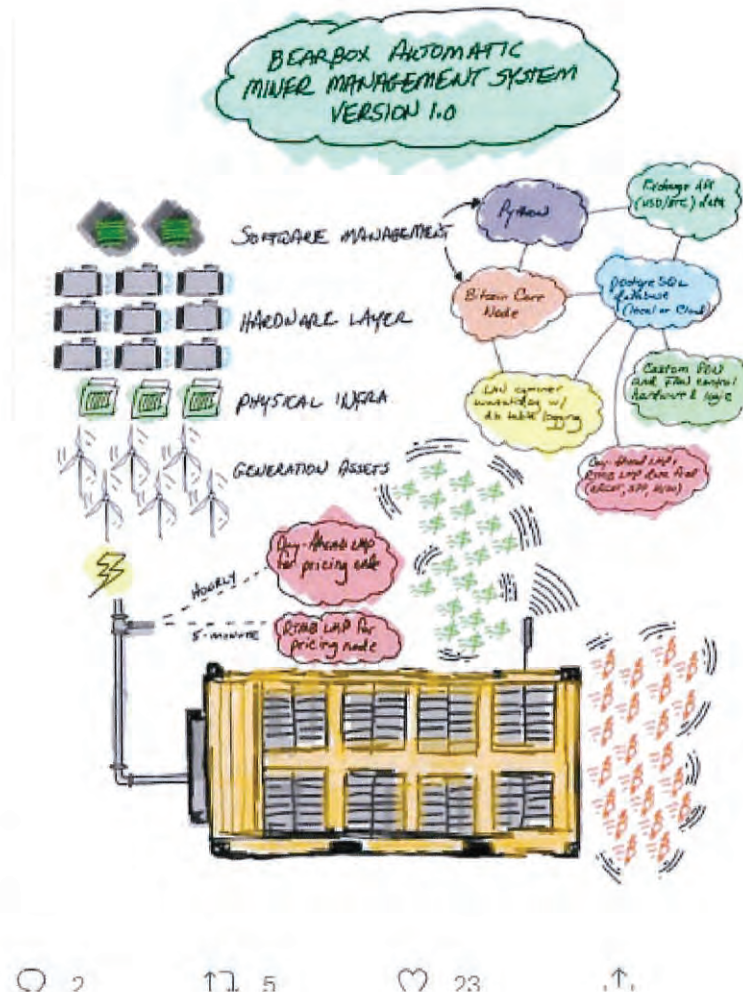 BEARBOX AUTOMATIC
MINER MANAGEMENT SYSTEM
VERSION 1.0
SOFTWARE MANAGEMENT
HARDWARE LAYER
PHYSICAL INFRA
GENERATION ASSETS
Python
Exchange API
(USD/BTC) data
Bitcoin Core
Node
PostgreSQL
database
(local or Cloud)
watchdog w/
db table logging
Custom PDU
and FAN control
hardware & logic
Day-Ahead LMP &
RTMB LMP data feed
(ERCOT, SPP, MISO)
Day-Ahead LMP
for pricing node
HOURLY
5-MINUTE
RTMB LMP for
pricing node
2
5
23